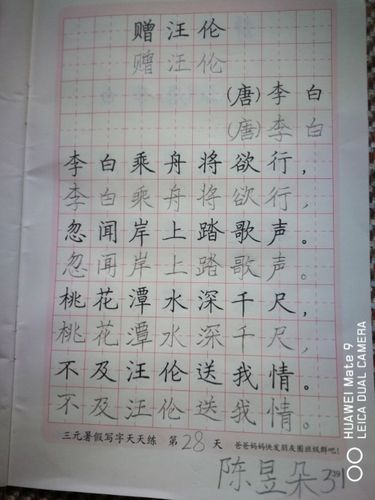 赠汪伦
赠汪伦
(唐)李白
(唐)李白
李白乘舟将欲行,
李白乘舟将欲行,
忽闻岸上踏歌声。
忽闻岸上踏歌声。
桃花潭水深千尺,
桃花潭水深千尺,
不及汪伦送我情。
不及汪伦送我情。
三元暑假写字天天练 第28天 爸爸妈妈快发朋友圈班级群吧!
陈昱朵
HUAWEI Mate 9
LEICA DUAL CAMERA